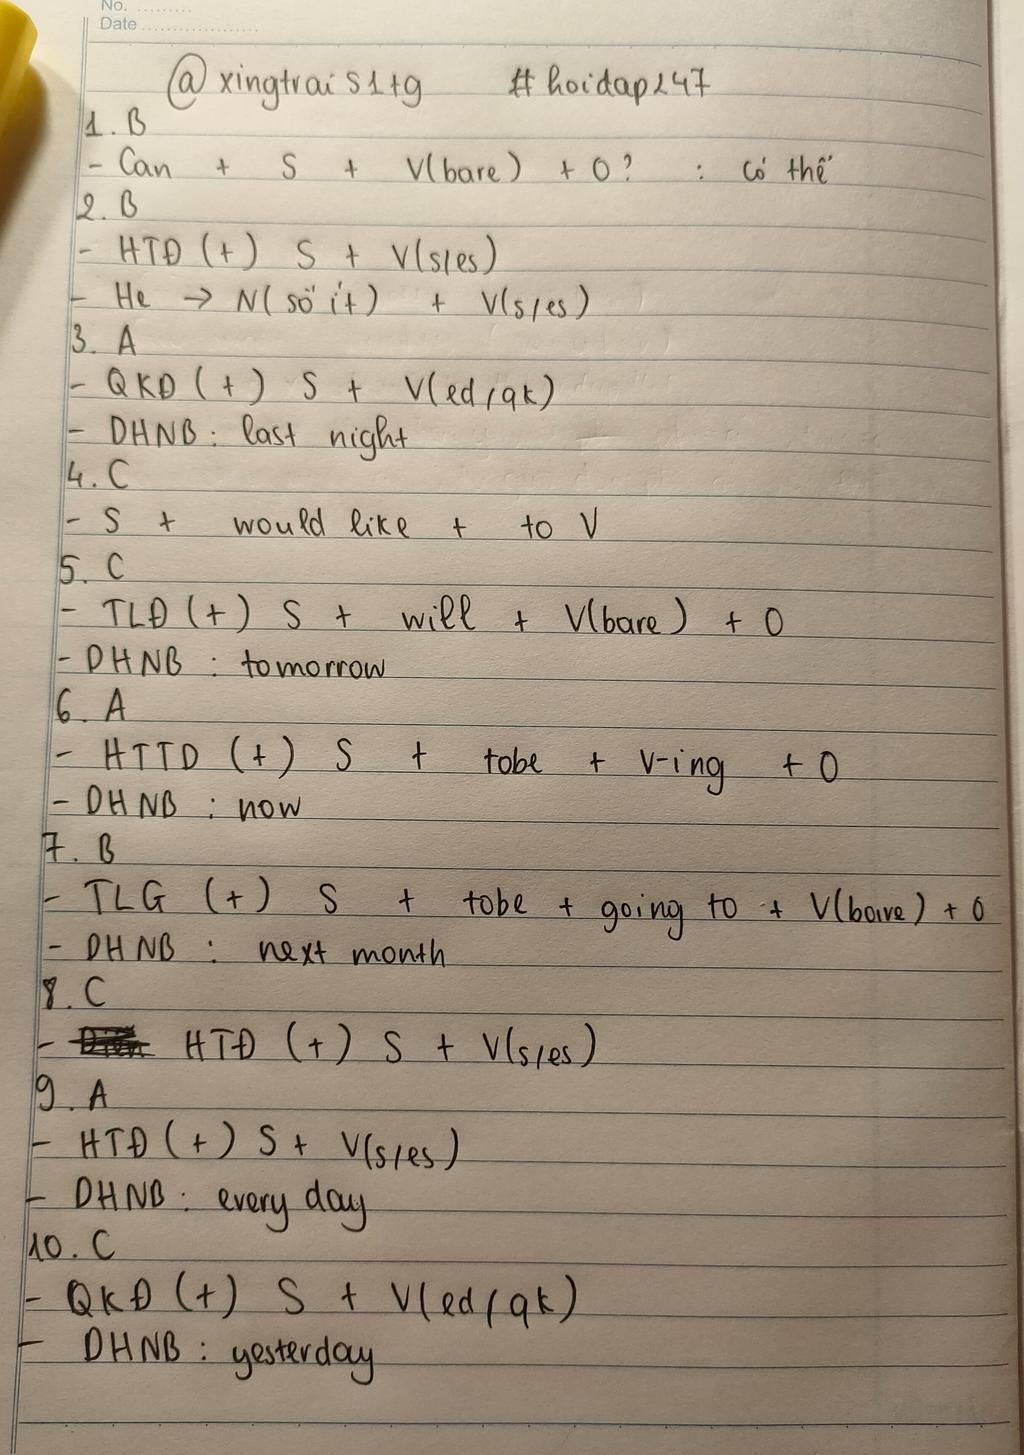 No. .........
Date ...................
@xingtrais1tg #hoidap247
1. B
- Can + S + V(bare) + O? : có thể
2. B
- HTĐ (+) S + V(s/es)
- He → N(số ít) + V(s/es)
3. A
- QKĐ (+) S + V(ed/qk)
- DHNB: last night
4. C
- S + would like + to V
5. C
- TLĐ (+) S + will + V(bare) + O
- DHNB : tomorrow
6. A
- HTTD (+) S + tobe + V-ing + O
- DHNB : now
7. B
- TLG (+) S + tobe + going to + V(bare) + O
- DHNB : next month
8. C
- HTĐ (+) S + V(s/es)
9. A
- HTĐ (+) S + V(s/es)
- DHNB : every day
10. C
- QKĐ (+) S + V(ed/qk)
- DHNB : yesterday